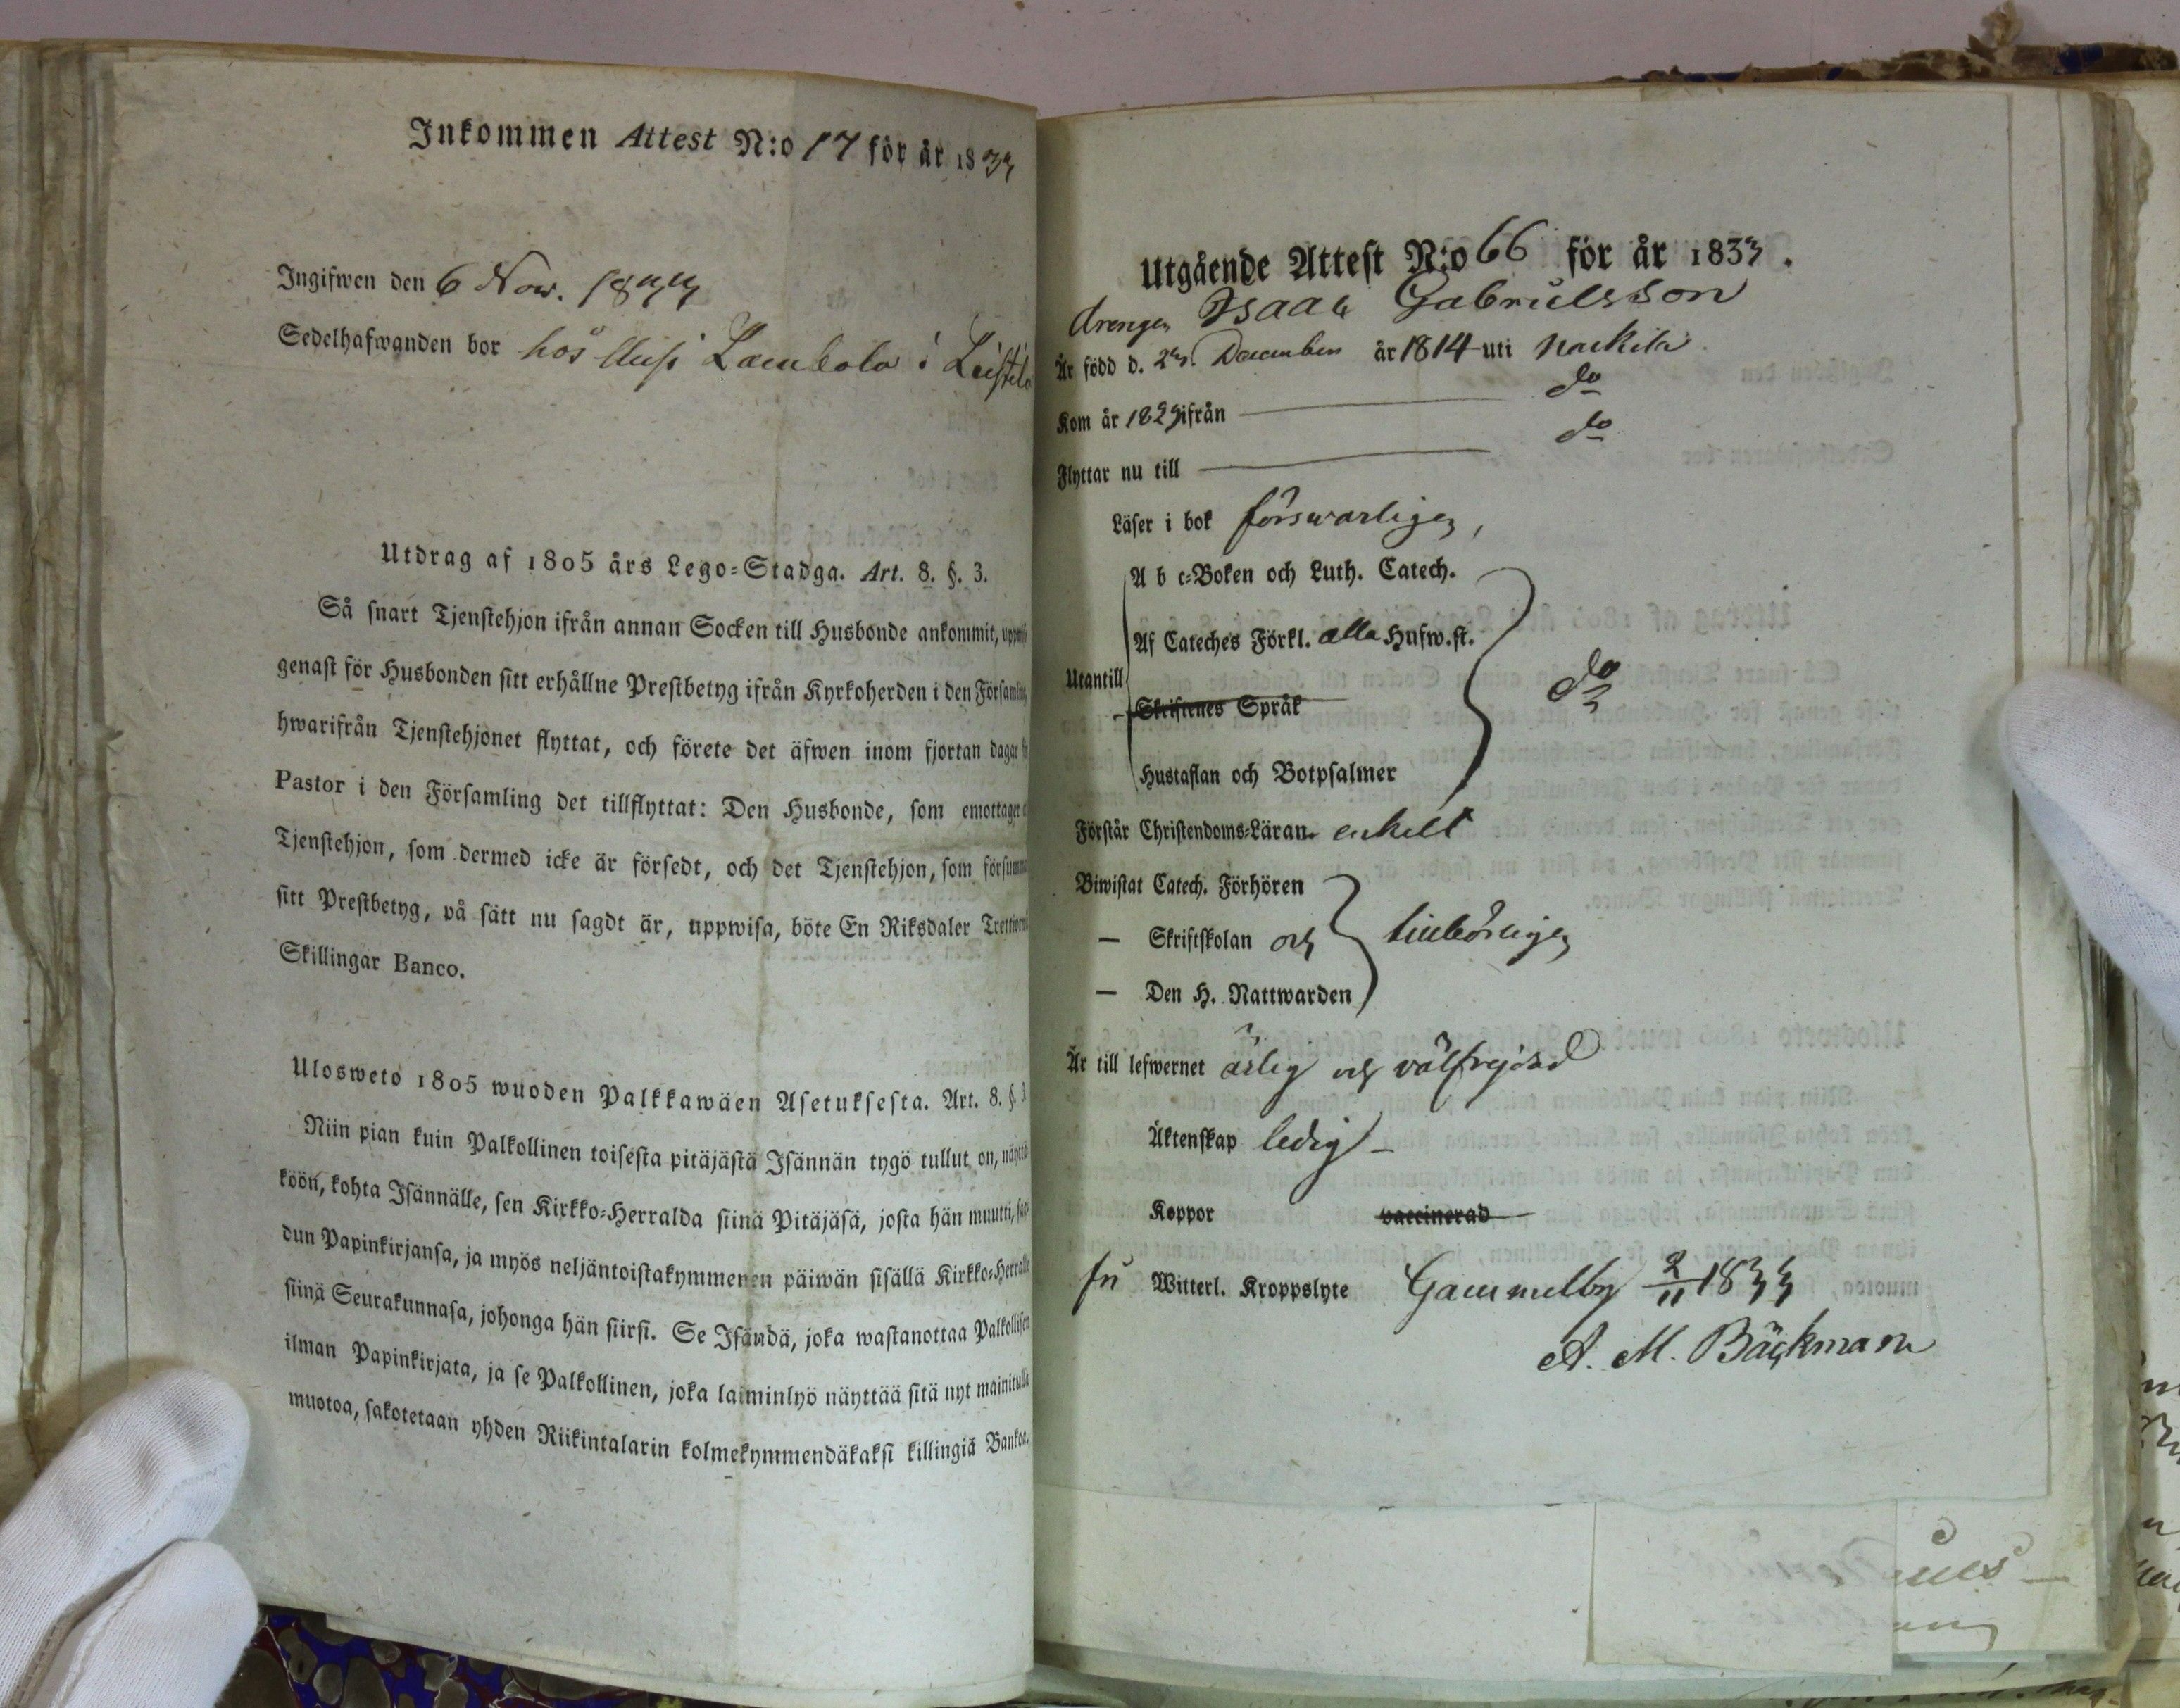 Inkommen Attest N:o 17 för år 1833
Ingifwen den 6 Now. 1833
Sedelhafwanden bor hos
Utdrag af 1805 års Lego-Stadga. Art. 8. §. 3.
Så snart Tjenstehjon ifrån annan Socken till Husbonde ankommit,
genast för Husbonden sitt erhållne Prestbetyg ifrån Kyrkoherden i den
hwarifrån Tjenstehjonet flyttat, och förete det äfwen inom fjortan dagar
Pastor i den Församling det tillflyttat: Den Husbonde, som emottager
Tjenstehjon, som dermed icke är försedt, och det Tjenstehjon, som
sitt Prestbetyg, på sätt nu sagdt är, uppwisa, böte En Riksdaler
Skillingar Banco.
Ulosweto 1805 wuoden Palkkawäen Asetuksesta. Art. 8. §. 3
Niin pian kuin Palkollinen toisesta pitäjästä Isännän tygö tullut on,
köön, kohta Isännälle, sen Kirkko-Herralda siinä Pitäjäsä, josta hän muutti,
dun Papinkirjansa, ja myös neljäntoistakymmenen päiwän sisällä
siinä Seurakunnasa, johonga hän siirsi. Se Isändä, joka wastanottaa
ilman Papinkirjata, ja se Palkollinen, joka laiminlyö näyttää sitä nyt
muotoa, sakotetaan yhden Riikintalarin kolmekymmendäkaksi killingiä Bankoa.
Utgående Attest N:o 66 för år 1833.
drengen Isaac Gabrielsson
Är född d. December år 1814 uti Nackila
Kom år 1829 ifrån do
Flyttar nu till do
Läser i bok förswarligen,
A b c-Boken och Luth. Catech.
Af Cateches Förkl. alla Hufw.st.
Utantill do
Skriftenes Språk
Hustaflan och Botpsalmer
Förstår Christendoms-Läran enkelt
Biwistat Catech. Förhören
— Skriftskolan och tillbörligen
— Den H. Nattwarden
Är till lefwernet ärlig och välfrejdad
Äktenskap ledig
Koppor vaccinerad
Witterl. Kroppslyte Gammelby 2/11 1833
A. M. Bäckman